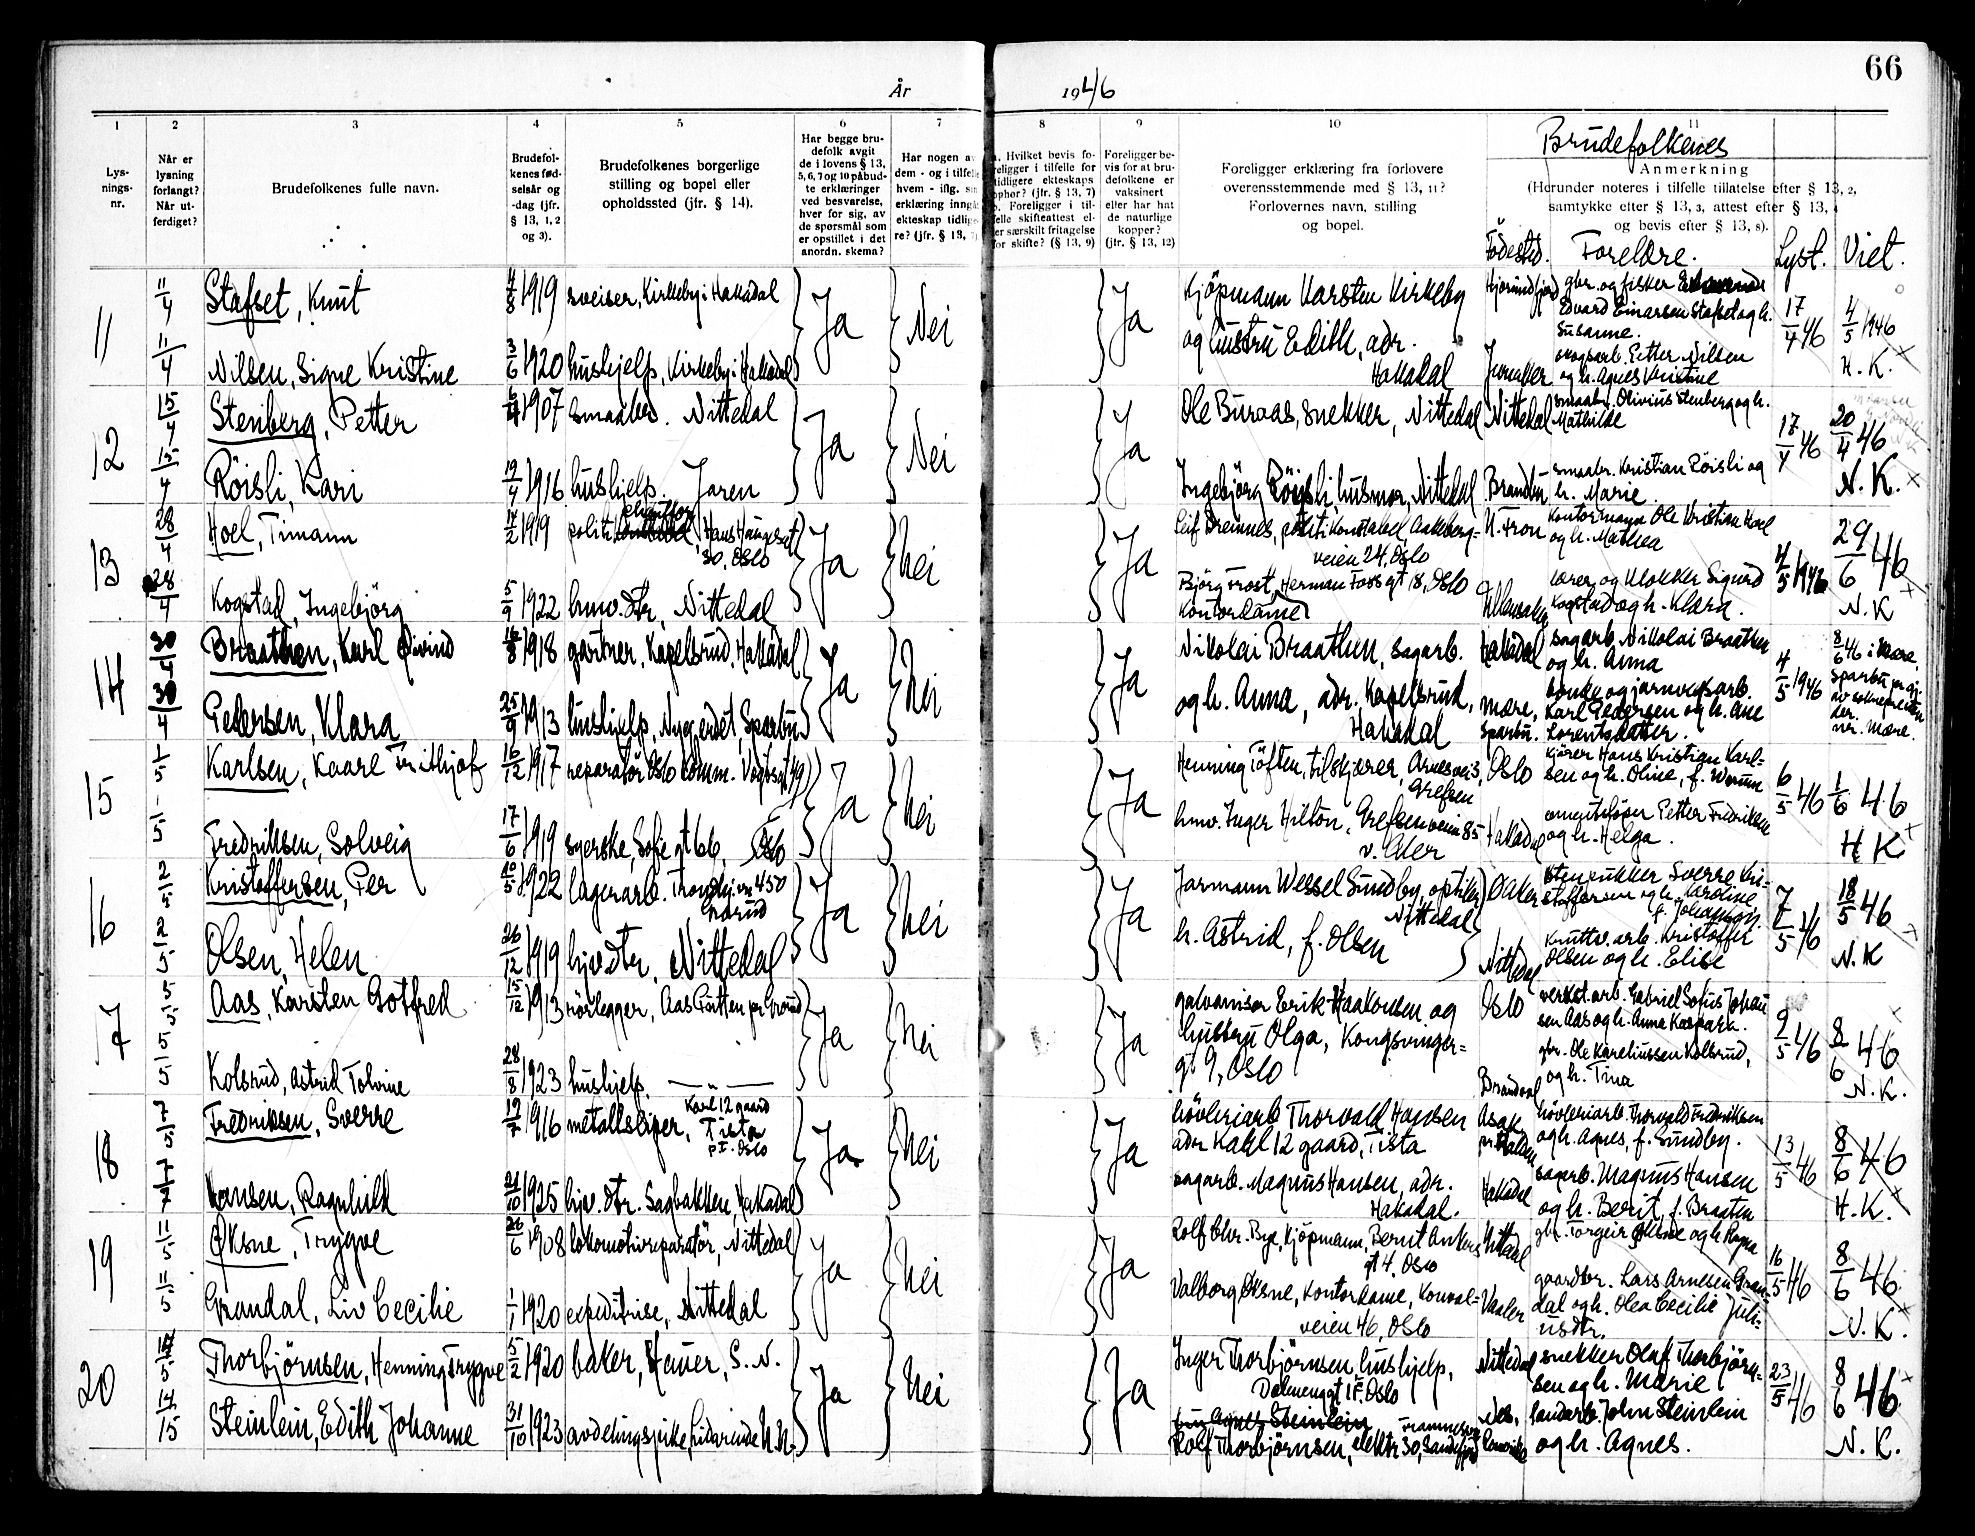 66
År 1946
1 2 3 4 5 6 7 8 9 10 11
Brudefolkenes
Lys-
nings-
nr.
Når er
lysning
forlangt?
Når ut-
ferdiget?
Brudefolkenes fulle navn.
Brudefol-
kenes fød-
selsår og
-dag (jfr.
§ 13, 1, 2
og 3).
Brudefolkenes borgerlige
stilling og bopel eller
opholdssted (jfr. § 14).
Har begge bru-
defolk avgit
de i lovens § 13,
5, 6, 7 og 10 påbud-
te erklæringer
ved besvarelse,
hver for sig, av
de spørsmål som
er opstillet i det
anordn. skema?
Har nogen av
dem - og i tilfelle
hvem - iflg. sin
erklæring inngåt
ekteskap tidlige-
re? (jfr. § 13, 7)
a. Hvilket bevis fo-
religger i tilfelle for
tidligere ekteskaps
ophør? (jfr. § 13, 7)
b. Foreligger i til-
felle skifteattest el-
ler særskilt fritagelse
for skifte? (§ 13, 9)
Foreligger be-
vis for at bru-
defolkene er
vaksinert
eller har hat
de naturlige
kopper?
(jfr. § 13, 12)
Foreligger erklæring fra forlovere
overensstemmende med § 13, 11?
Forlovernes navn, stilling
og bopel.
Anmerkning
(Herunder noteres i tilfelle tillatelse efter § 13, 2,
samtykke efter § 13, 3, attest efter § 13, 4
og bevis efter § 13, 8).
Fødested. Foreldre. Lyst. Viet.
11 11/4 Stafset, Knut 4/8 1919 sveiser, Kirkeby i Hakadal Ja Nei Ja
Kjöpmann Karsten Kirkeby
og hustru Edith, adr.
Hakadal
Hjørundfjord gbr. og fisker
Edvard Einarsen Stafset og h.
Susanne.
17/4 46 4/5 1946
H. K.
11/4 Nilsen, Signe Kristine 3/6 1920 hushjelp, Kirkeby i Hakadal
skogsarb. Petter Nilsen
og h. Agnes Kristine
12 15/4 Stenberg, Petter 1907 smaabr. Nittedal Ja Nei Ja
Ole Buraas, snekker, Nittedal Nittedal smaabr. Olivius Stenberg og h.
Mathilde
17/4 46 20/4 46
N. K.
15/4 Röisli, Kari 19/4 1916 hushjelp. Jaren
Ingebjörg Röisli, husmor, Nittedal Brandbu smaabr. Kristian Röisli og
h. Marie.
13 28/4 Hoel, Timann 14/2 1919 politi , Hans Haugesgt
30, Oslo Ja Nei Ja
Leif Dremnes, politikonstabel Aakeberg-
veien 24, Oslo
N. Fron kontormann Ole Kristian Hoel
og h. Mathea
4/5 1946 29/6 46
N. K
28/4 Kogstad, Ingebjörg 5/9 1922 hmv. dtr, Nittedal
Björg Frost, Herman Foss gt 18, Oslo
Kontordame
Ullensaker lærer og klokker Sigurd
Kogstad og h. Klara.
14 30/4 Braathen, Karl Øivind 16/8 1918 gartner, Kapelsrud, Hakadal Ja Nei Ja
Nikolai Braathen, sagarb.
og h. Anna, adr. Kapelsrud,
Hakadal
Hakadal sagarb. Nikolai Braathen
og h. Anna
4/5 1946 8/6 46 i Mære,
Sparbu
30/4 Pedersen, Klara 25/9 1913 hushjelp, Nygjerdet, Sparbu
Mære,
Sparbu. bonde og jarnvegsarb.
Karl Pedersen og h. Ane
Lorentsdatter.
15 1/5 Karlsen, Kaare Frithjof 16/12 1917 reparatör Oslo komm. Vogtsgt 49 Ja Nei Ja
Henning Töften, tilskjærer, Arnesvei 3,
Grefsen
Oslo kjører Hans Kristian Karl-
sen og h. Oline, f. Werum
6/5 46 1/6 46
H K
1/5 Fredriksen, Solveig 17/6 1919 syerske, Sofie gt 66, Oslo
hmv. Inger Hilton, Grefsenveien 85
v. Aker
Hakadal Petter Fredriksen
og h. Helga.
16 2/5 Kristoffersen, Per 20/5 1922 lagerarb. Trondhj.vn 450
Grorud Ja Nei Ja
Jarmann Wessel Sundby, optiker
Nittedal
h. Astrid, f. Olsen
Aker Sverre Kri-
stoffersen og h. Karoline
f. Johansen
7/5 46 18/5 46
N. K
2/5 Olsen, Helen 26/12 1919 hjv. dtr, Nittedal
Nittedal Kruttv. arb. Kristoffer
Olsen og h. Elise
17 5/5 Aas, Karsten Gotfred 15/12 1913 rörlegger, Aas Gutten pr Grorud Ja Nei Ja
galvanisør Erik Haakonsen og
hustru Olga, Kongsvinger-
gt 9, Oslo
Oslo verkst. arb. Gabriel Sofus Johan-
sen Aas og h. Anna Kaspara.
9/5 46 8/6 46
N. K.
5/5 Kolsrud, Astrid Tolvine 28/8 1923 hushjelp. — " —
Brandval gbr. Ole Kareliussen Kolsrud,
og h. Tina
18 7/5 Fredriksen, Sverre 19/7 1916 metallsliper, Karl 12 gaard
Tista
pt. Oslo Ja Nei Ja
hövleriarb Thorvald Hansen
adr Karl 12 gaard, Tista
Asak
pr. Halden hövleriarb. Thorvald Fredriksen
og h. Agnes, f. Sundby.
13/5 46 8/6 46
H. K.
7/7 Hansen, Ragnhild 21/10 1925 hjv. dtr. Sagbakken, Hakadal
sagarb. Magnus Hansen, adr.
Hakadal.
Hakadal sagarb. Magnus Hansen
og h. Berit, f. Braaten
19 11/5 Øksne, Trygve 26/6 1908 lokomotivreparatör, Nittedal Ja Nei Ja
Rolf Chr. Bye, Kjöpmann, Bernt Ankers
gt 4, Oslo
Nittedal gbr. Torgeir Øksne og h Ragna
16/5 46 8/6 46
N. K.
11/5 Grandal, Liv Cecilie 1/1 1920 expeditrise, Nittedal
Valborg Øksne, Kontordame, Konval-
veien 46, Oslo
Vaaler gaardbr. Lars Arnesen Gran-
dal og h. Olea Cecilie Juli-
usdtr.
20 14/5 Thorbjörnsen, Henning Trygve 5/2 1920 baker, Hauer, S. N. Ja Nei Ja
Inger Thorbjörnsen, hushjelp,
Dalmenggt 15 Oslo
Nittedal snekker Olaf Thorbjörn-
sen og h. Marie
23/5 46 8/6 46
N. K.
14/15 Steinlein, Edith Johanne 31/10 1923 avdelingspike, Fridarheim N. N.
Agnes Steinlein
Rolf Thorbjörnsen, elektr 30, Sandefjord
landarb. John Steinlein
og h. Agnes.